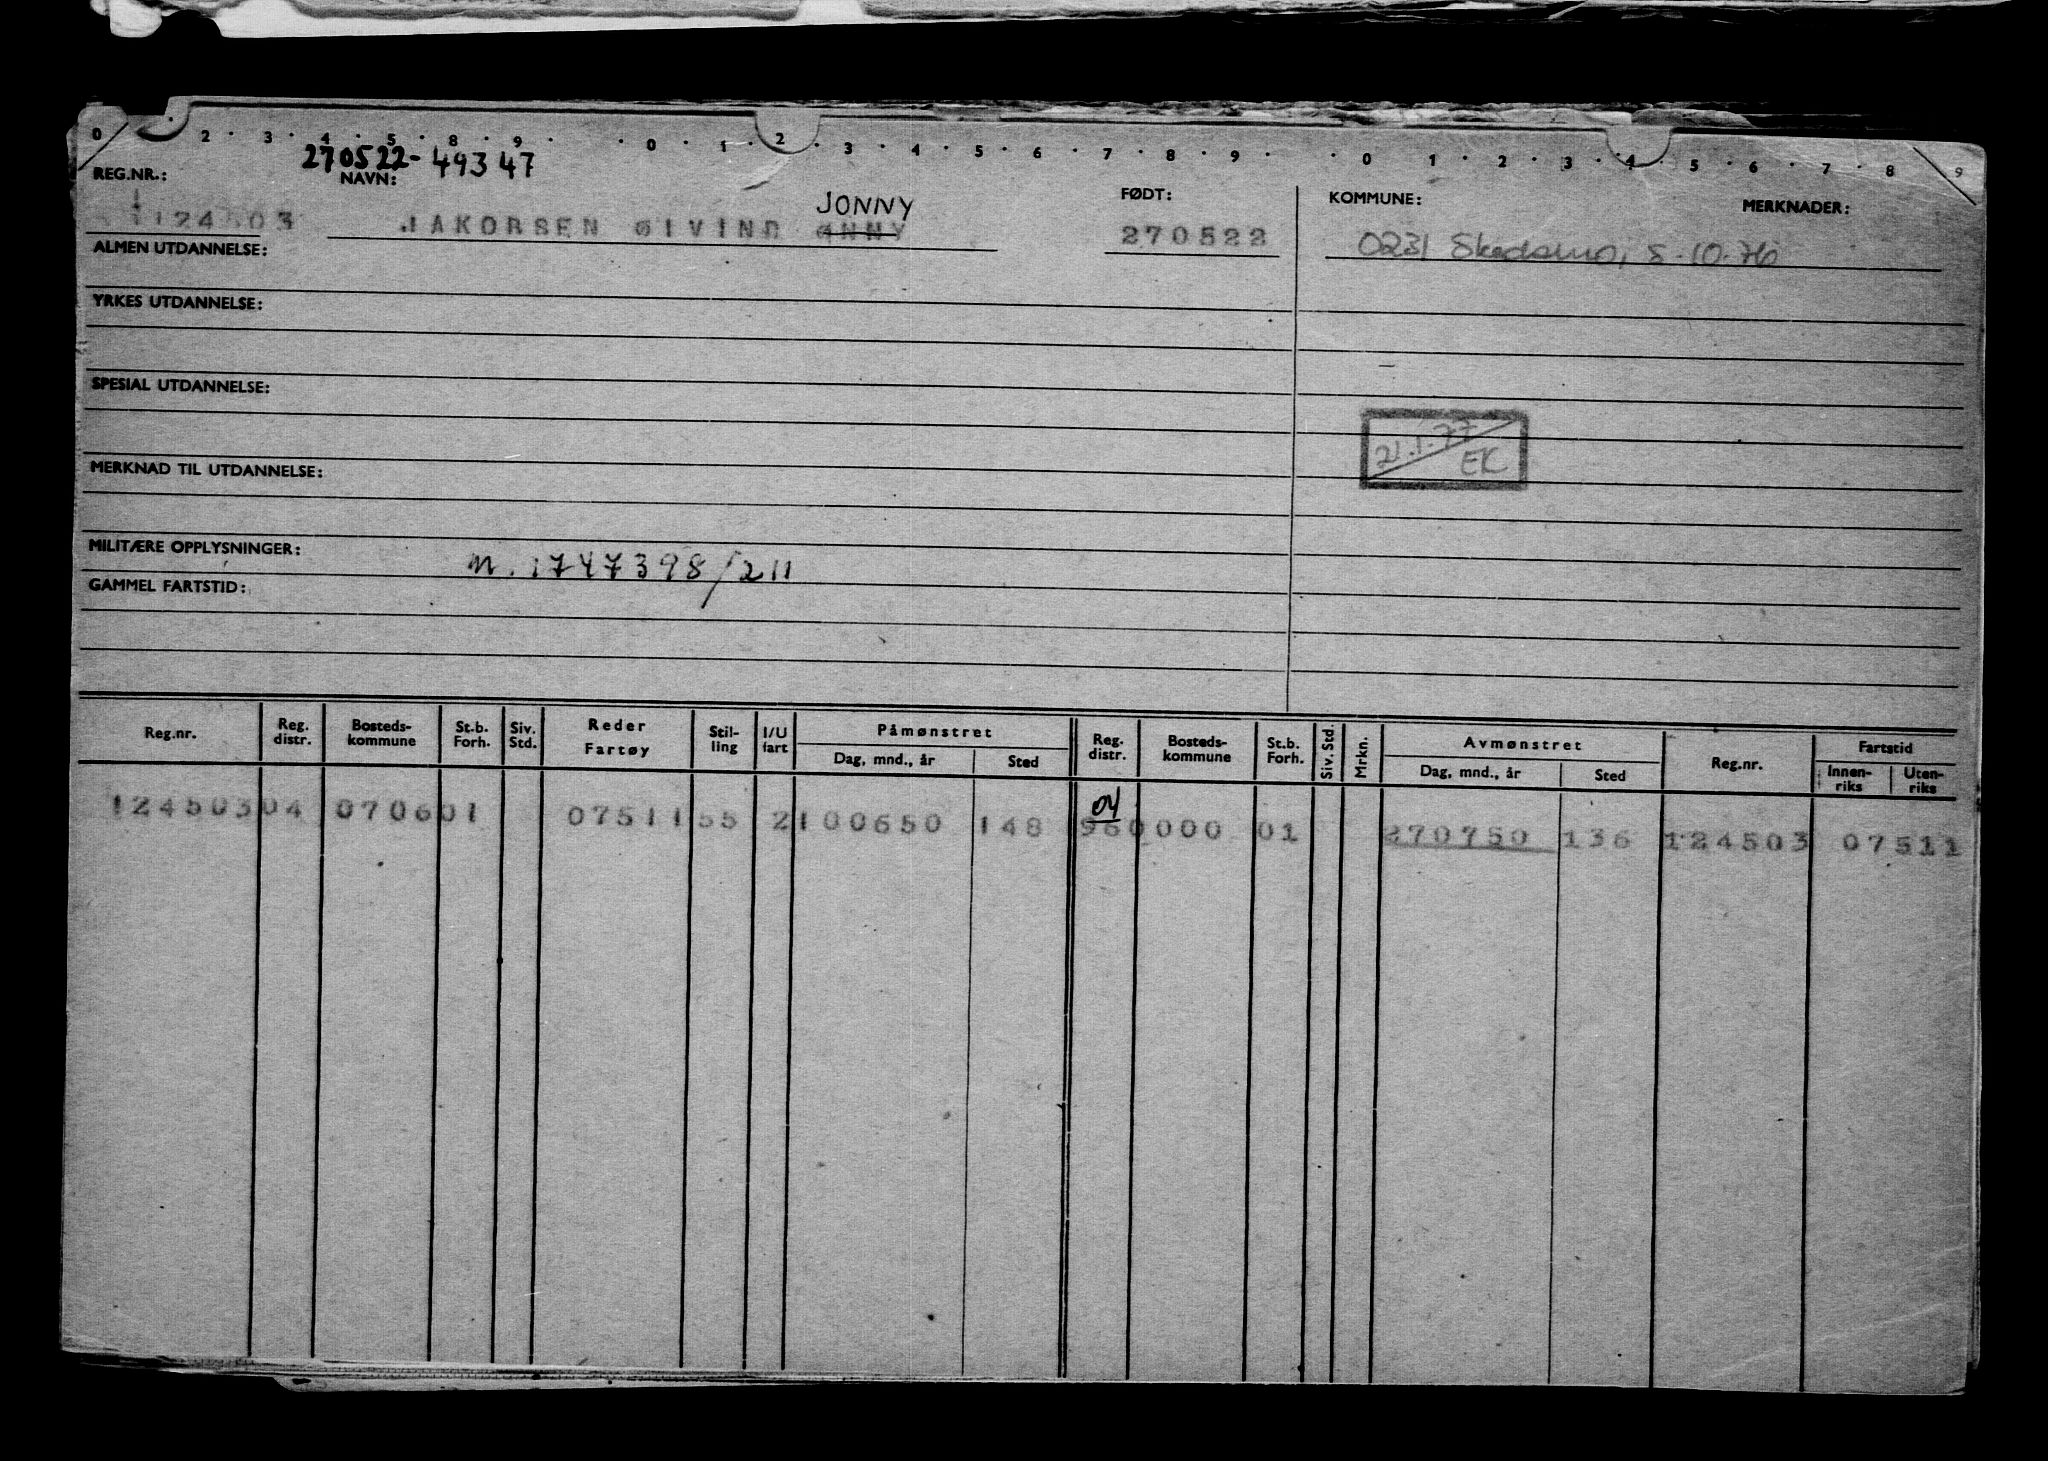 0 · 2 · 3 · 4 · 5 · 8 · 9 · · 0 · 1 · 2 · 3 · 4 · 5 · 6 · 7 · 8 · 9 · · 0 · 1 · 2 · 3 · 4 · 5 · 6 · 7 · 8 9
270522-49347
REG.NR.: NAVN: FØDT: KOMMUNE: MERKNADER:
JONNY
124503 JAKOBSEN ØIVIND ONNY 270522 0231 Skedsmo, 5.10.76
ALMEN UTDANNELSE:
YRKES UTDANNELSE:
SPESIAL UTDANNELSE:
21.1.77
EK
MERKNAD TIL UTDANNELSE:
MILITÆRE OPPLYSNINGER: M. 1747398/211
GAMMEL FARTSTID:
Reg.nr. Reg. distr. Bosteds- kommune St.b. Forh. Siv. Std. Reder Fartøy Stil- ling I/U fart Påmønstret Dag, mnd., år Sted Reg. distr. Bosteds- kommune St.b. Forh. Siv. Std. Mrkn. Avmønstret Dag, mnd., år Sted Reg.nr. Fartstid Innen- riks Uten- riks
04
124503 04 0706 01 07511 55 2 100650 148 960000 01 270750 136 124503 07511